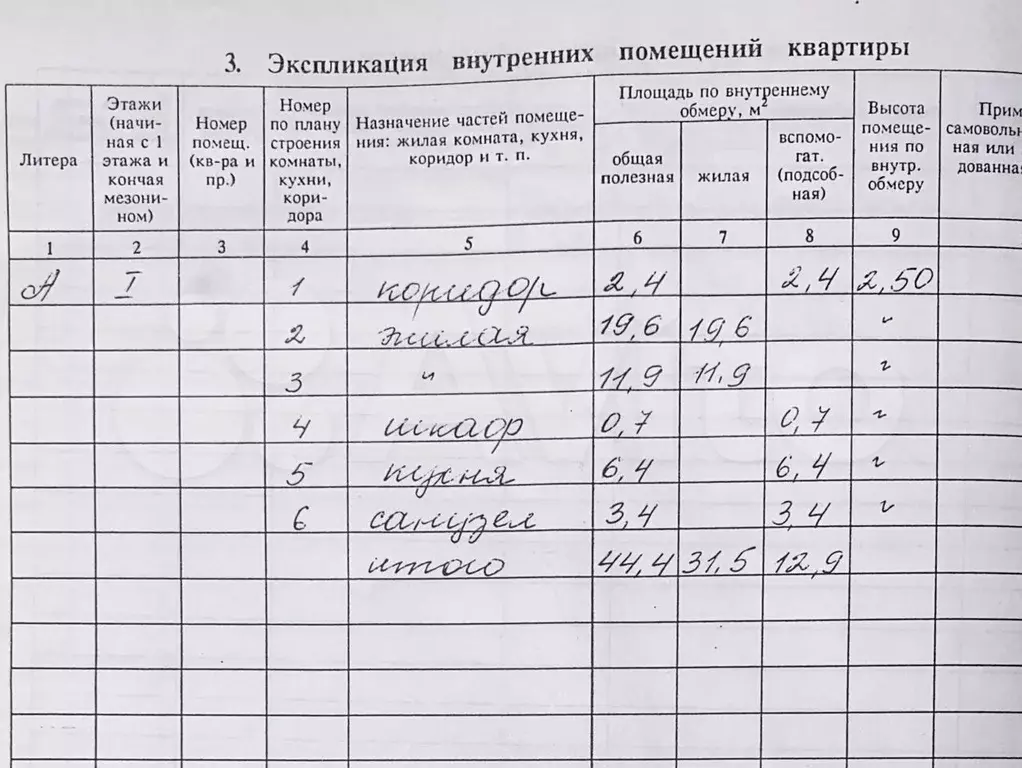 3. Экспликация внутренних помещений квартиры
Литера
Этажи (начи-ная с 1 этажа и кончая мезони-ном)
Номер помещ. (кв-ра и пр.)
Номер по плану строения комнаты, кухни, кори-дора
Назначение частей помеще-ния: жилая комната, кухня, коридор и т. п.
Площадь по внутреннему обмеру, м²
общая полезная
жилая
вспомо-гат. (подсоб-ная)
Высота помеще-ния по внутр. обмеру
Прим
самовольн
ная или
дованна
1 2 3 4 5 6 7 8 9
А I 1 коридор 2,4 2,4 2,50
2 жилая 19,6 19,6 "
3 " 11,9 11,9 "
4 шкаф 0,7 0,7 "
5 кухня 6,4 6,4 "
6 санузел 3,4 3,4 "
итого 44,4 31,5 12,9